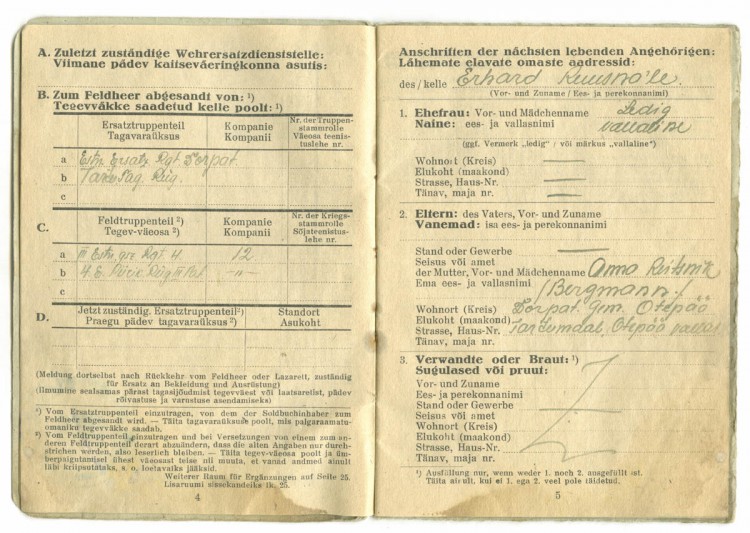 A. Zuletzt zuständige Wehrersatzdienststelle:
Viimane pädev kaitseväeringkonna asutis:
B. Zum Feldheer abgesandt von: ¹)
Tegevväkke saadetud kelle poolt: ¹)
Ersatztruppenteil
Tagavaraüksus
Kompanie
Kompanii
Nr. der Truppen-
stammrolle
Väeosa teenis-
tuslehe nr.
a Estn. Ersatz Rgt Dorpat
b
c
C.
Feldtruppenteil ²)
Tegev-väeosa ²)
Kompanie
Kompanii
Nr. der Kriegs-
stammrolle
Sõjateenistus-
lehe nr.
a III Estn. gre Rgt. 4 12
b 4. E. -"-
c
D.
Jetzt zuständig. Ersatztruppenteil²)
Praegu pädev tagavaraüksus ²)
Standort
Asukoht
(Meldung dortselbst nach Rückkehr vom Feldheer oder Lazarett, zuständig
für Ersatz an Bekleidung und Ausrüstung)
(Ilmumine sealsamas pärast tagasijõudmist tegevväest või laatsaretist, pädev
rõivastuse ja varustuse asendamiseks)
¹) Vom Ersatztruppenteil einzutragen, von dem der Soldbuchinhaber zum
Feldheer abgesandt wird. — Täita tagavaraüksuse poolt, mis palgaraamatu-
omaniku tegevväkke saadab.
²) Vom Feldtruppenteil einzutragen und bei Versetzungen von einem zum an-
deren Feldtruppenteil derart abzuändern, dass die alten Angaben nur durch-
strichen werden, also leserlich bleiben. — Täita tegev-väeosa poolt ja üm-
berpaigutamisel ühest väeosast teise nii muuta, et vanad andmed ainult
läbi kriipsutataks, s. o. loetavaiks jääksid.
Weiterer Raum für Ergänzungen auf Seite 25.
Lisaruumi sissekandeiks lk. 25.
4
Anschriften der nächsten lebenden Angehörigen:
Lähemate elavate omaste aadressid:
des / kelle Erhard
(Vor- und Zuname / Ees- ja perekonnanimi)
1. Ehefrau: Vor- und Mädchenname Ledig
Naine: ees- ja vallasnimi vallaline
(ggf. Vermerk „ledig" / või märkus „vallaline")
Wohnort (Kreis)
Elukoht (maakond)
Strasse, Haus-Nr.
Tänav, maja nr.
2. Eltern: des Vaters, Vor- und Zuname
Vanemad: isa ees- ja perekonnanimi
Stand oder Gewerbe
Seisus või amet
der Mutter, Vor- und Mädchenname Anna
Ema ees- ja vallasnimi (Bergmann)
Wohnort (Kreis) Dorpat. Gem. Otepää
Elukoht (maakond)
Strasse, Haus-Nr. Tartumaal, Otepää vallas
Tänav, maja nr.
3. Verwandte oder Braut: ¹)
Sugulased või pruut:
Vor- und Zuname
Ees- ja perekonnanimi
Stand oder Gewerbe
Seisus või amet
Wohnort (Kreis)
Elukoht (maakond)
Strasse, Haus-Nr.
Tänav, maja nr.
¹) Ausfüllung nur, wenn weder 1. noch 2. ausgefüllt ist.
Täita ainult, kui ei 1. ega 2. veel pole täidetud.
5